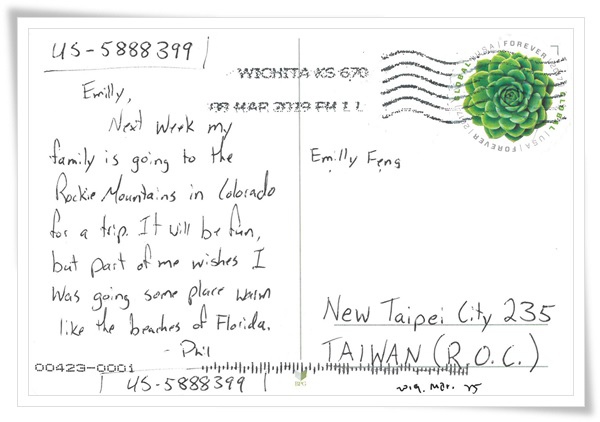 US-5888399
Emilly,
Next week my
family is going to the
Rockie Mountains in Colorado
for a trip. It will be fun,
but part of me wishes I
was going some place warm
like the beaches of Florida.
- Phil
00423-0001
US-5888399
WICHITA KS 670
09 MAR 2019 PM 1 L
GLOBAL | USA | FOREVER | 2017
GLOBAL | USA | FOREVER
Emilly Feng
New Taipei City 235
TAIWAN (R.O.C.)
2019. Mar. 25